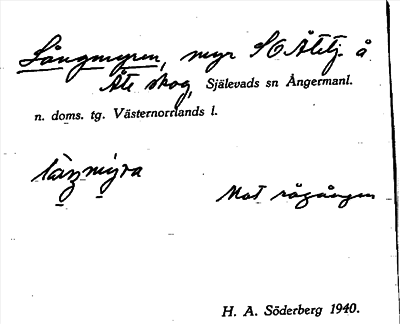 Långmyren, myr SO Åtetj. å
Åte skog, Själevads sn Ångermanl.
n. doms. tg. Västernorrlands l.
Mot rågången
H. A. Söderberg 1940.